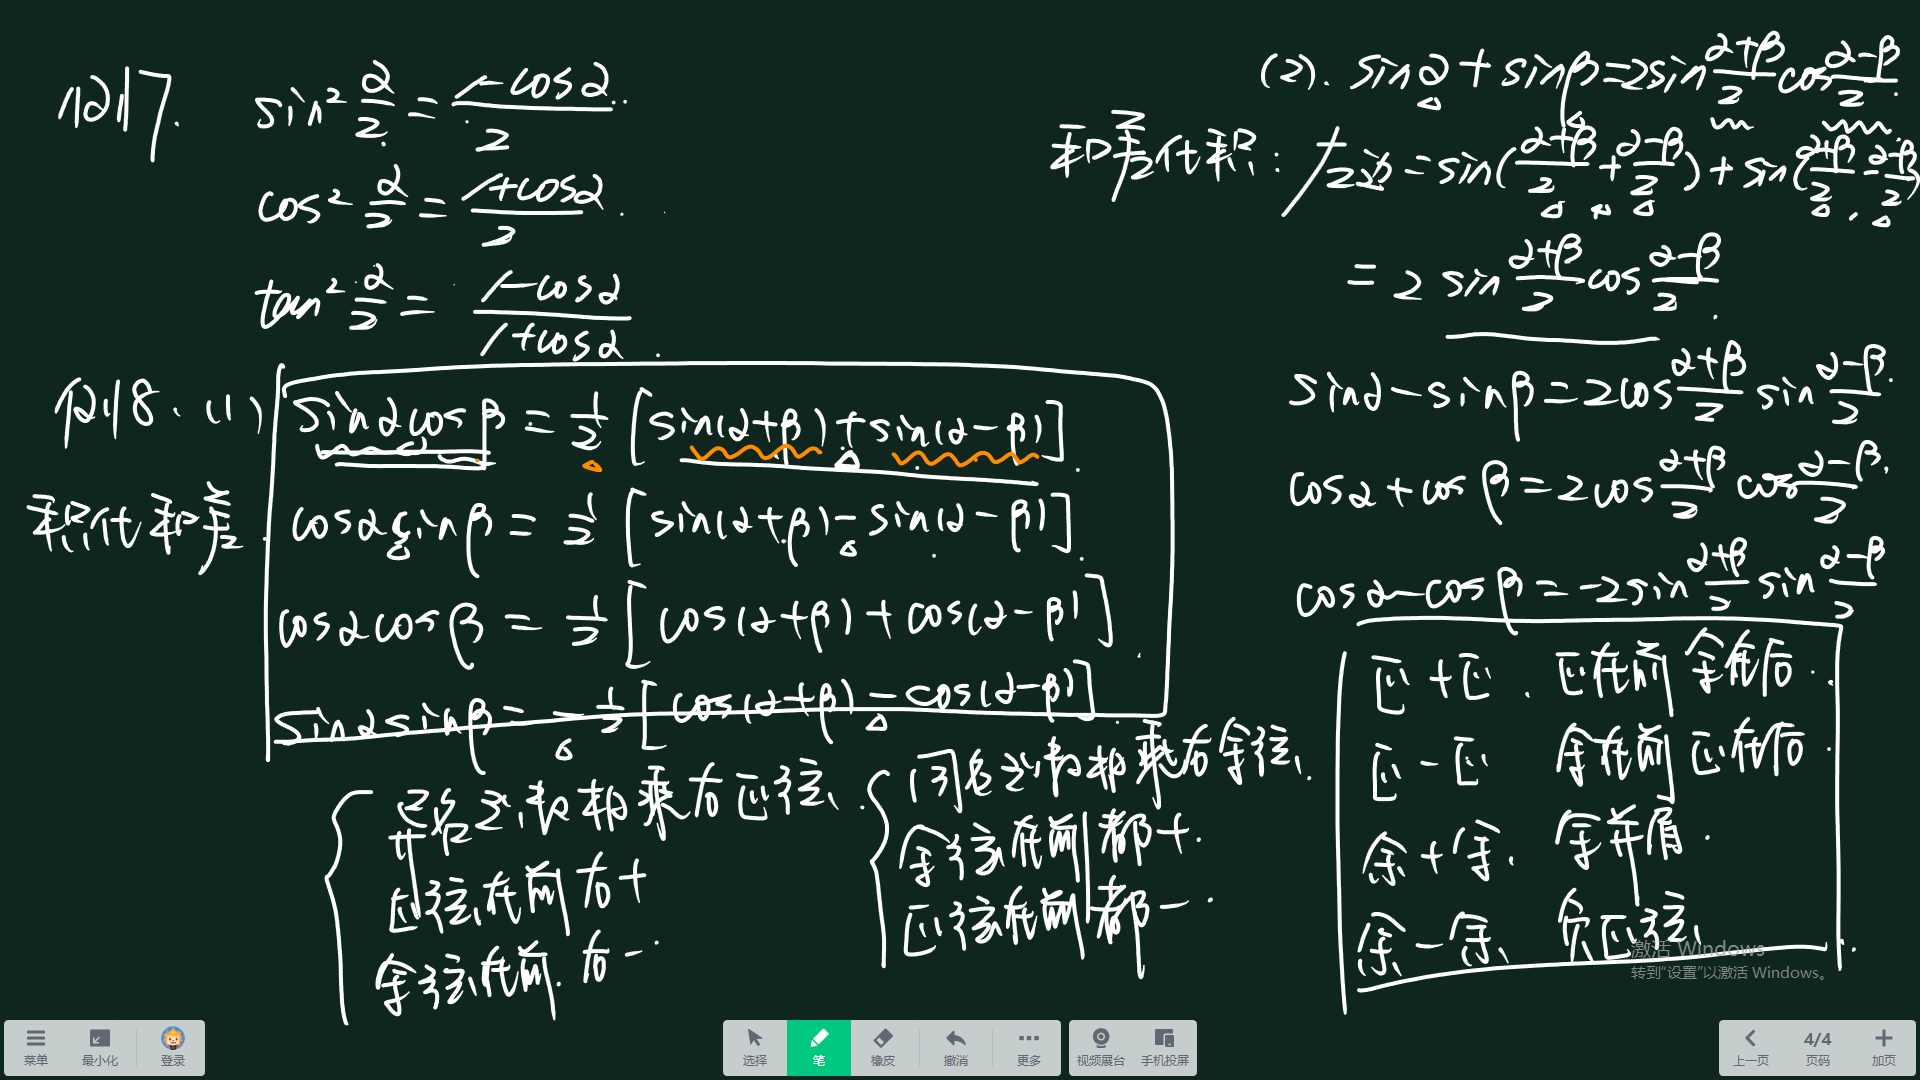 例7. sin² α/2 = (1-cosα)/2.
cos² α/2 = (1+cosα)/2.
tan² α/2 = (1-cosα)/(1+cosα).
例8. (1) sinαcosβ = 1/2 [sin(α+β)+sin(α-β)].
积化和差. cosαsinβ = 1/2 [sin(α+β)-sin(α-β)].
cosαcosβ = 1/2 [cos(α+β)+cos(α-β)]
sinαsinβ = -1/2 [cos(α+β)-cos(α-β)].
异名之积相乘右正弦、
正弦在前右+
余弦在前.右-.
同名之积相乘右余弦、
余弦在前都+.
正弦在前都-.
(2). sinα+sinβ=2sin (α+β)/2 cos (α-β)/2.
和差化积: 左边=sin((α+β)/2+(α-β)/2)+sin((α+β)/2-(α-β)/2)
= 2 sin (α+β)/2 cos (α-β)/2.
sinα-sinβ=2cos (α+β)/2 sin (α-β)/2.
cosα+cosβ=2cos (α+β)/2 cos (α-β)/2.
cosα-cosβ=-2sin (α+β)/2 sin (α-β)/2
正+正、正在前 余在后.
正-正 余在前 正在后.
余+余、余并肩.
余-余、负正弦、
激活 Windows
转到“设置”以激活 Windows。
菜单 最小化 登录
选择 笔 橡皮 撤消 更多
视频展台 手机投屏
上一页 4/4 页码 加页